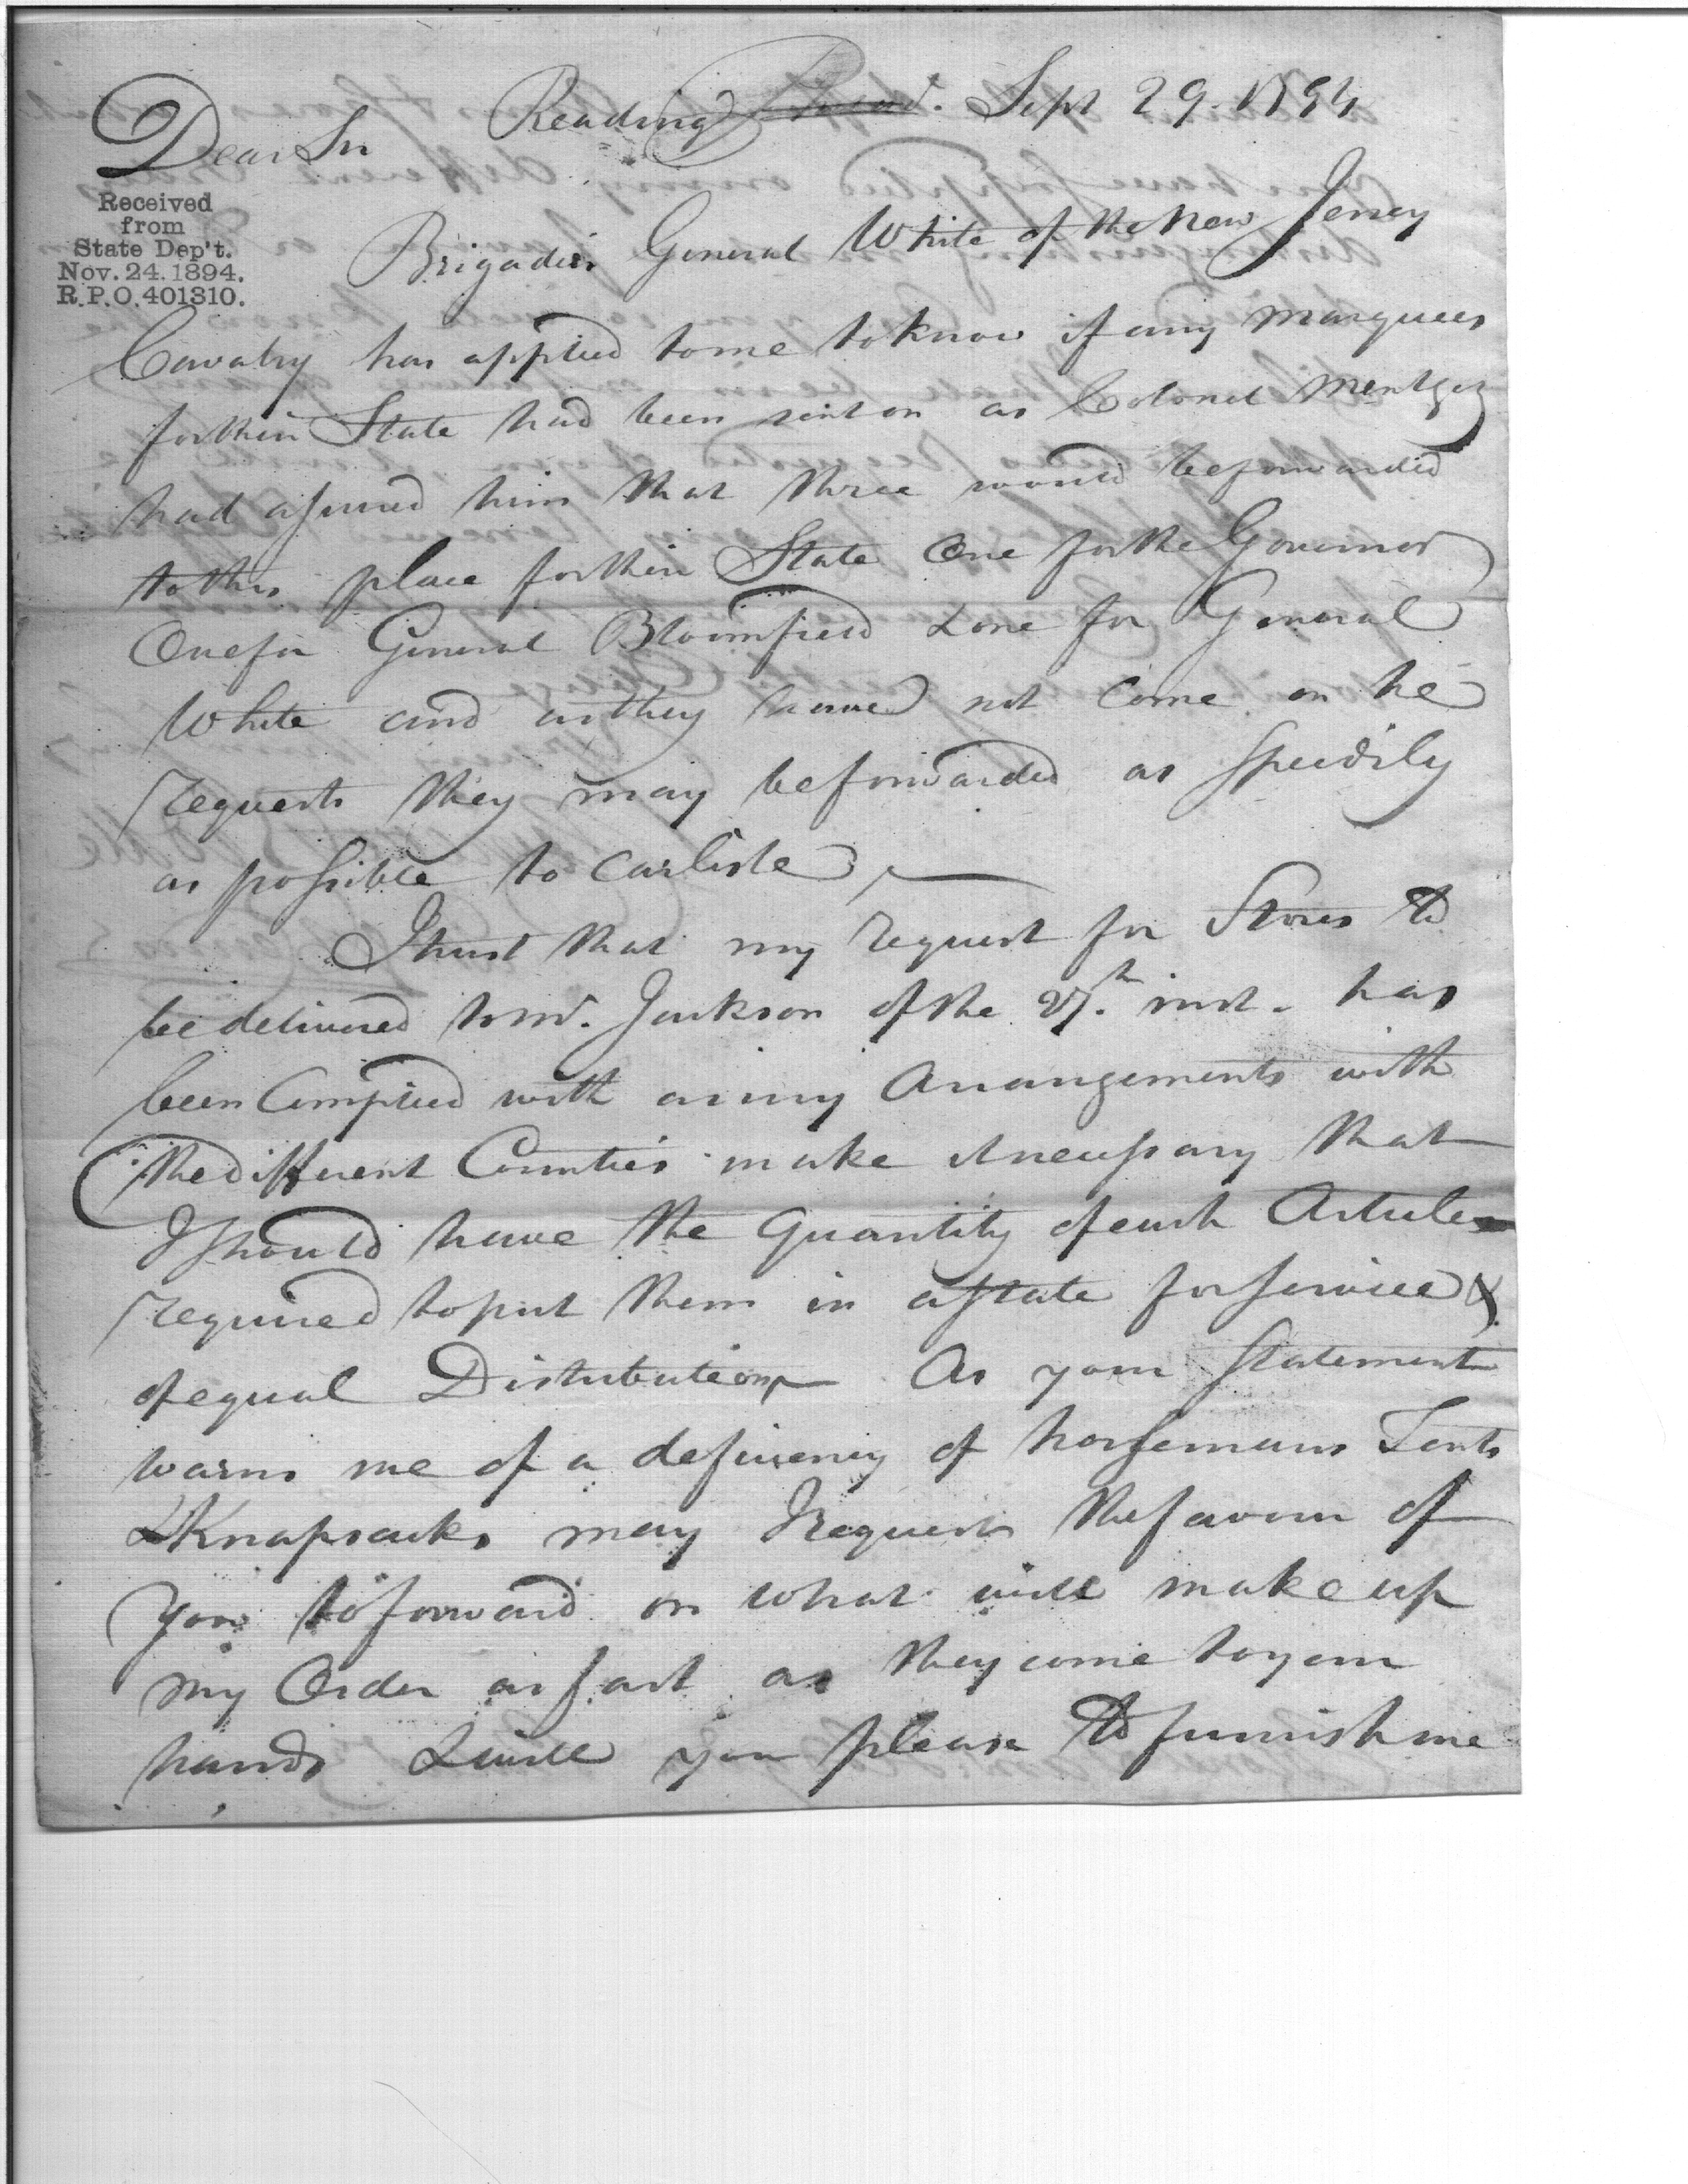 Reading Sept 29. 1794
Dear Sir
Received
from
State Dep't.
Nov. 24. 1894.
R.P.O. 401310.
Brigadier General White of the New Jersey
Cavalry has applied to me to know if any marquees
for their State had been sent on as Colonel Mentges
had assured him that three would be forwarded
to this place for their State One for the Governor
One for General Bloomfield & one for General
White and as they have not come on he
requests they may be forwarded as speedily
as possible to Carlisle,
I trust that my request for Stores to
be delivered to Mr. Jackson of the 27.th inst. has
been Complied with as my Arrangements with
the different Counties make it necessary that
I should have the quantity of each Article
required to put them in a state for service &
of equal Distribution As your statement
warns me of a deficiency of horsemans Tents
& Knapsacks may I request the favour of
you to forward on what will make up
my Order as fast as they come to your
hands & will you please to furnish me